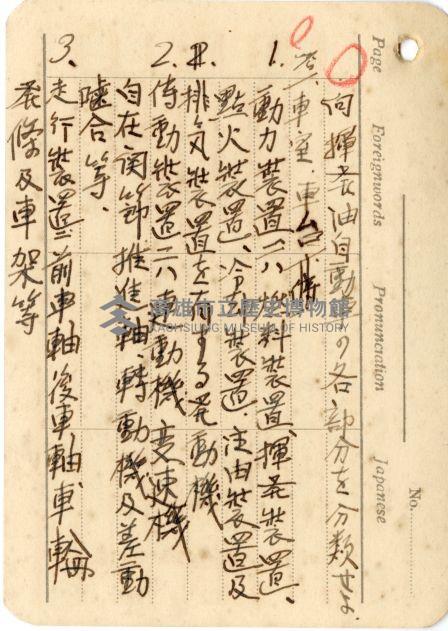 向揮若油自動車ノ各部分を分類せよ
答、車室、車台ト
1. 動力装置ニハ燃料装置、揮発装置、
點火装置、冷却装置、注油装置及
排気装置を有する発動機
2. 傳動装置ニハ動機変速機
自在関節推進軸、轉動機及差動
嚙合等、
3. 走行装置ニ前車軸後車軸車輪
発條及車架等
Page Foreignwords Pronunciation Japanese
No.
高雄市立歷史博物館
KAOHSIUNG MUSEUM OF HISTORY